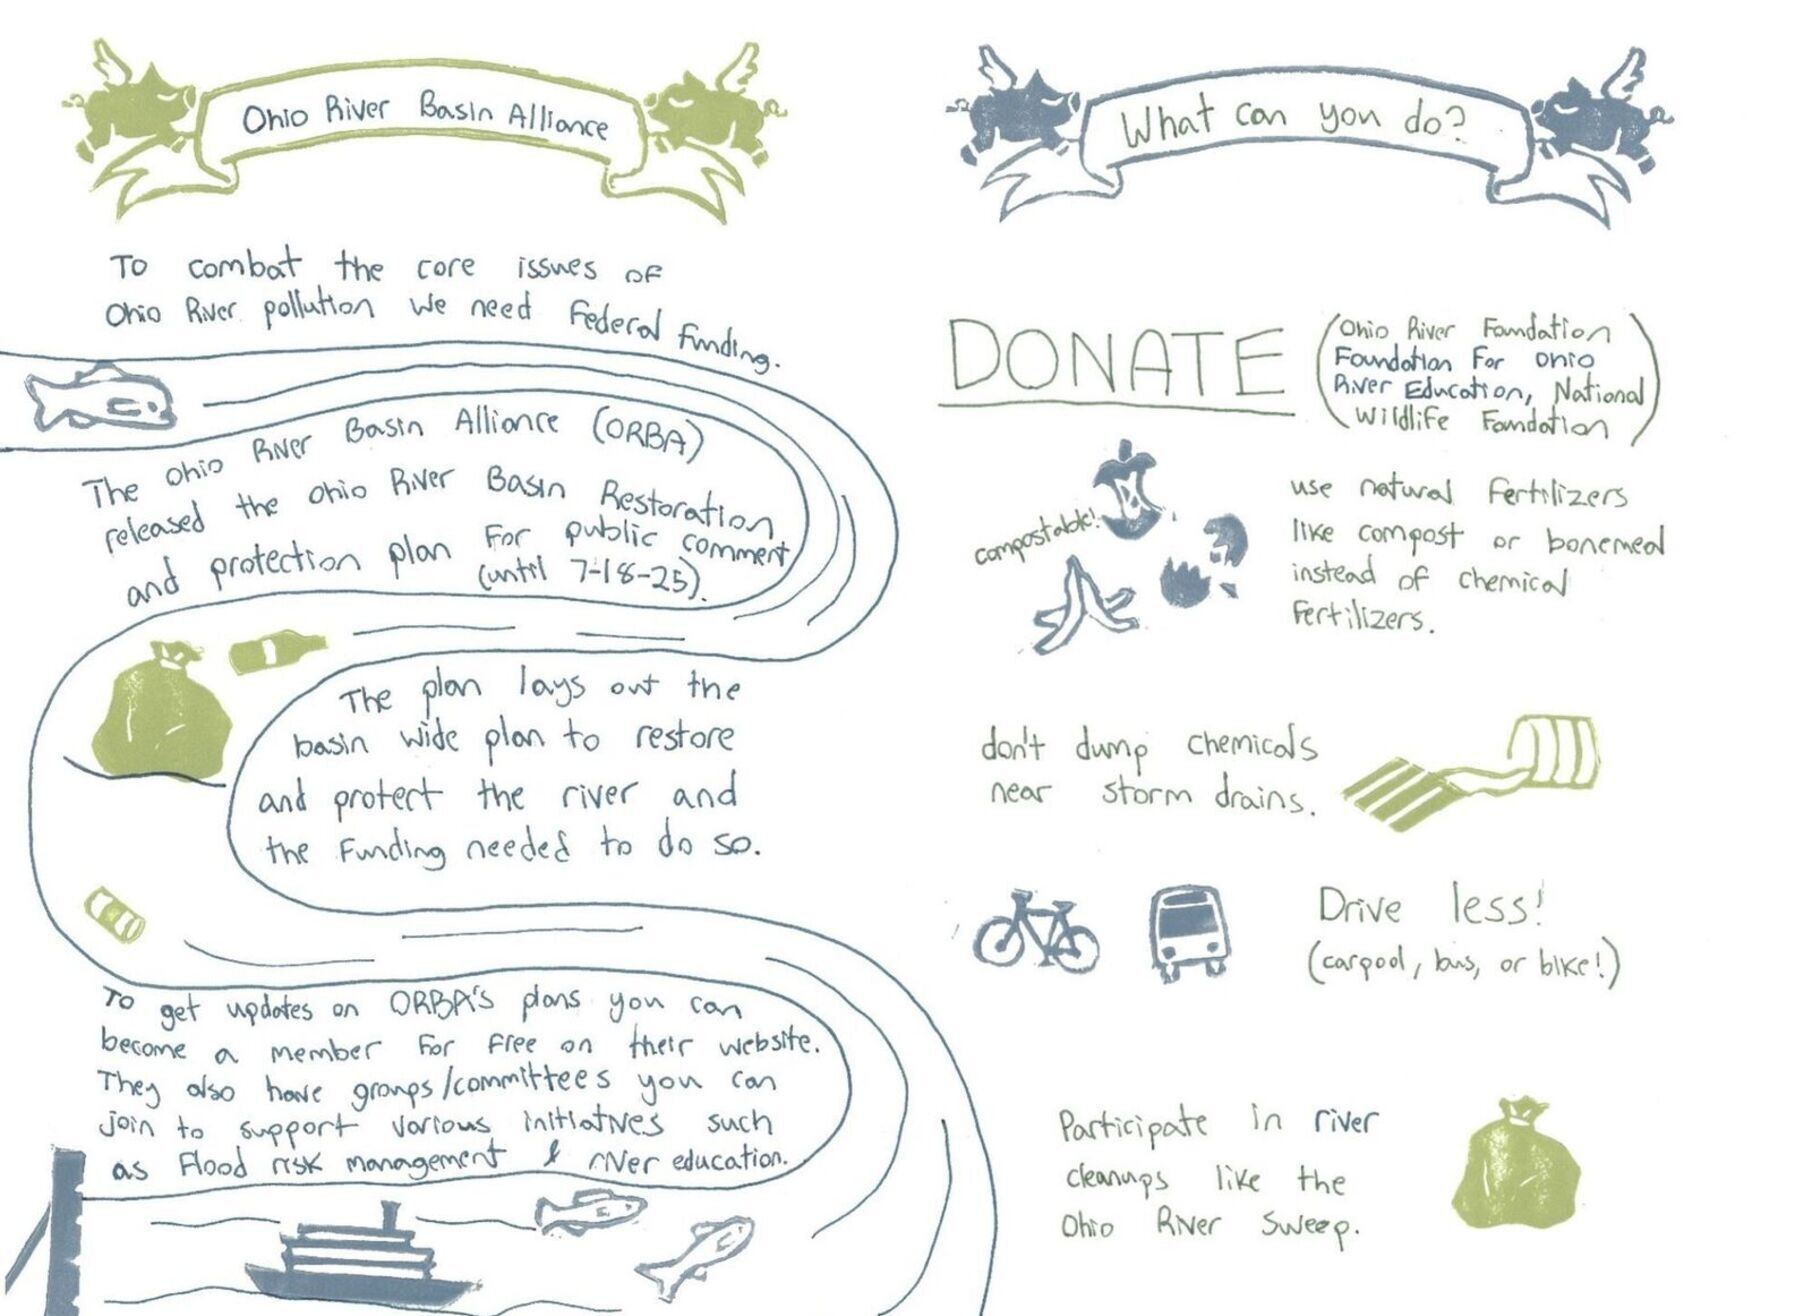 Ohio River Basin Alliance
To combat the core issues of
Ohio River pollution we need Federal Funding.
The Ohio River Basin Alliance (ORBA)
released the Ohio River Basin Restoration
and protection plan For public comment
(until 7-18-25).
The plan lays out the
basin wide plan to restore
and protect the river and
the Funding needed to do so.
To get updates on ORBA's plans you can
become a member For Free on their website.
They also have groups/committees you can
join to support various initiatives such
as Flood risk management & river education.
What can you do?
DONATE
(Ohio River Foundation
Foundation For Ohio
River Education, National
Wildlife Foundation)
compostable!
use natural Fertilizers
like compost or bonemeal
instead of chemical
Fertilizers.
don't dump chemicals
near storm drains.
Drive less!
(carpool, bus, or bike!)
Participate in river
cleanups like the
Ohio River Sweep.